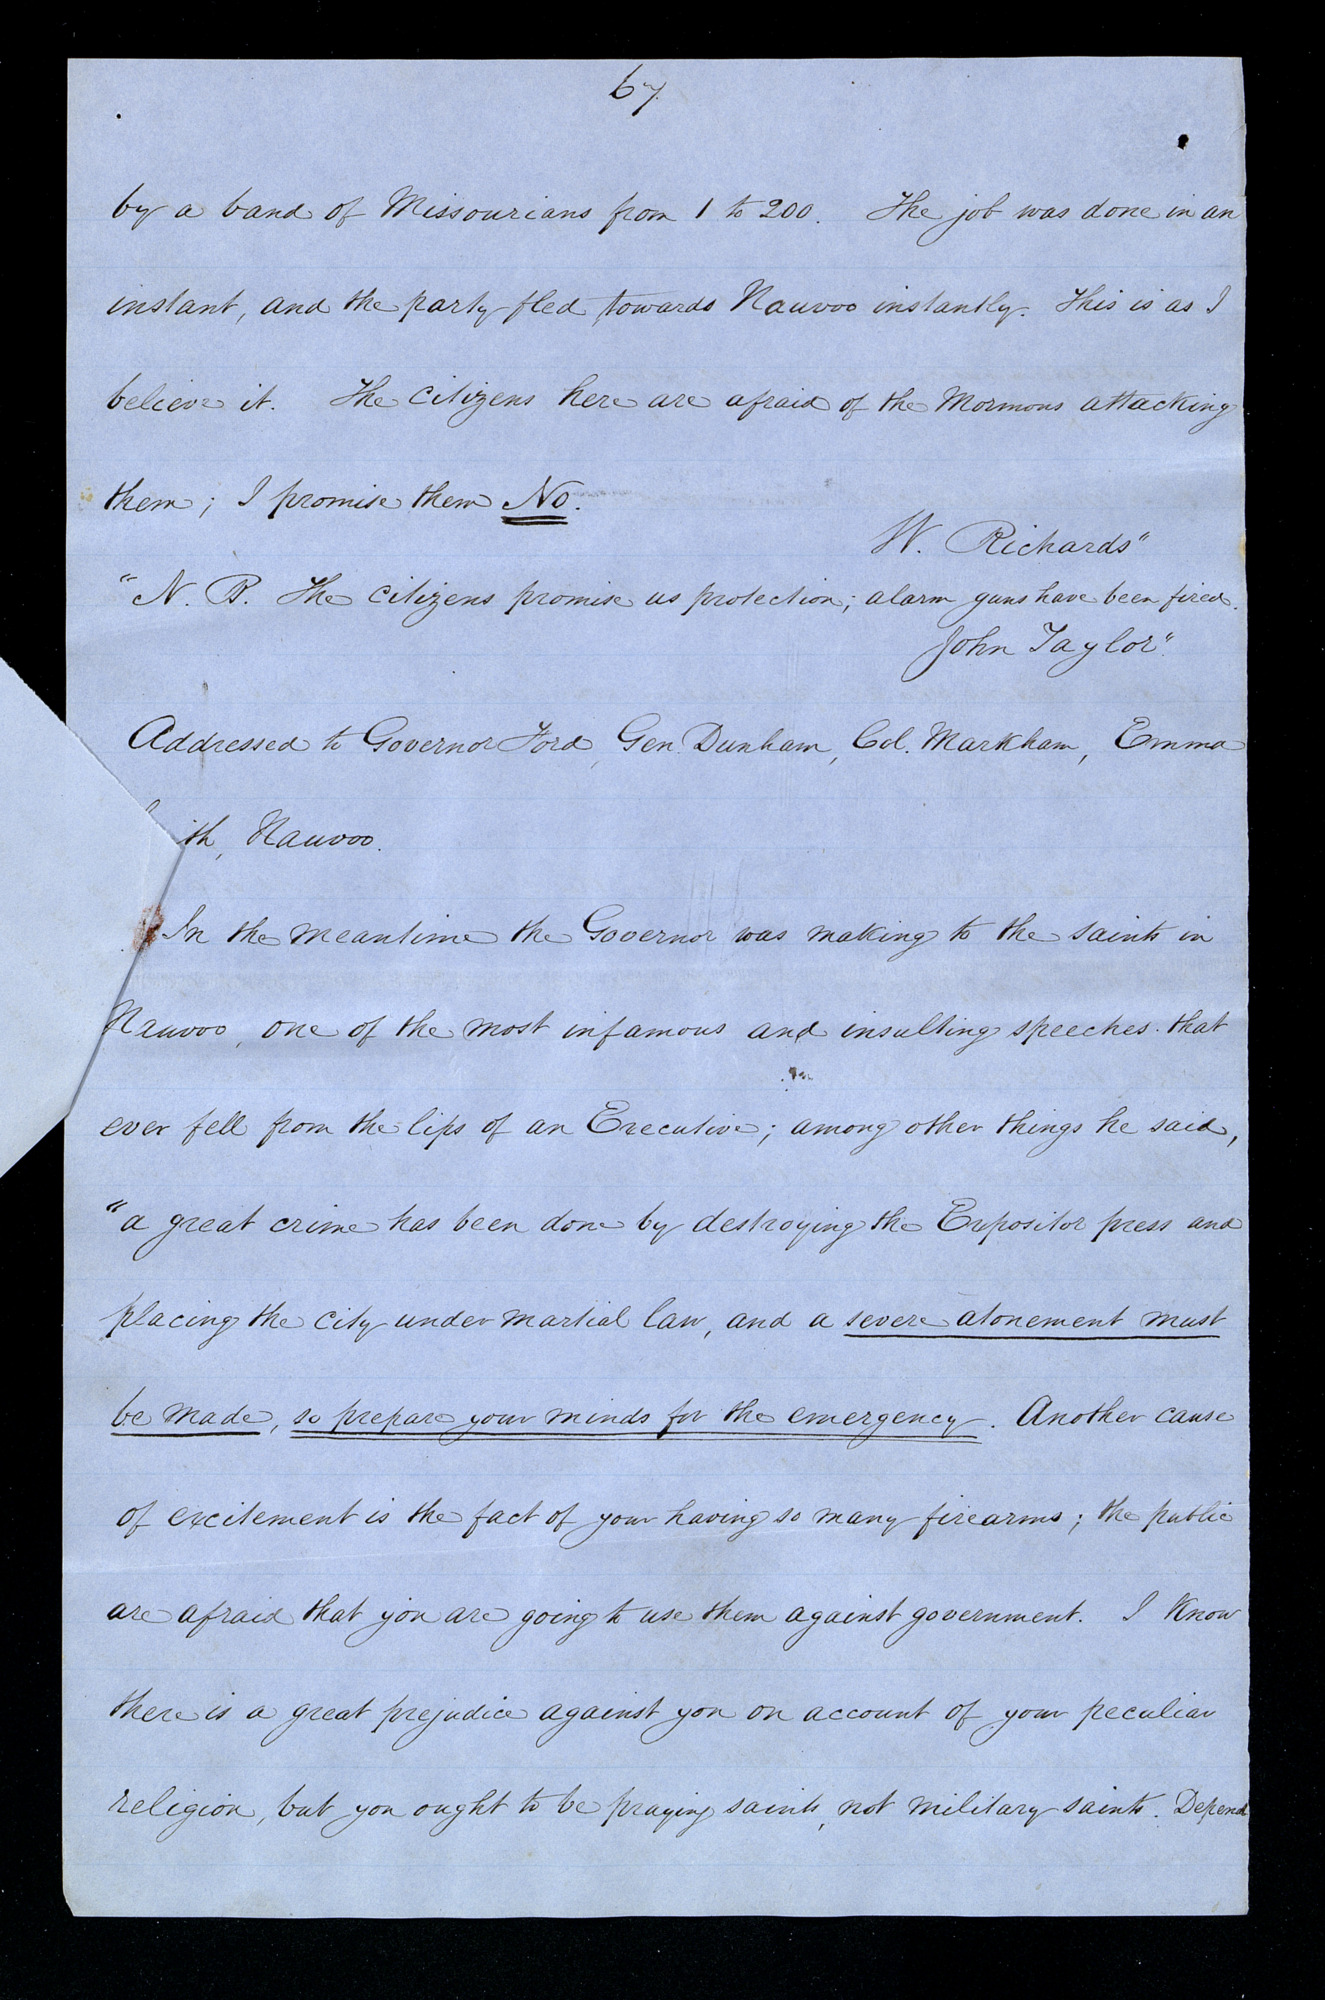 67.
by a band of Missourians from 1 to 200. The job was done in an
instant, and the party fled towards Nauvoo instantly. This is as I
believe it. The citizens here are afraid of the Mormons attacking
them; I promise them No.
W. Richards"
"N. B. The citizens promise us protection; alarm guns have been fired.
John Taylor".
Addressed to Governor Ford, Gen. Dunham, Col. Markham, Emma
ith, Nauvoo.
In the meantime the Governor was making to the saints in
Nauvoo, one of the most infamous and insulting speeches that
ever fell from the lips of an Executive; among other things he said,
"a great crime has been done by destroying the Expositor press and
placing the city under martial law, and a severe atonement must
be made, so prepare your minds for the emergency. Another cause
of excitement is the fact of your having so many firearms; the public
are afraid that you are going to use them against government. I know
there is a great prejudice against you on account of your peculiar
religion, but you ought to be praying saints, not military saints. Depend